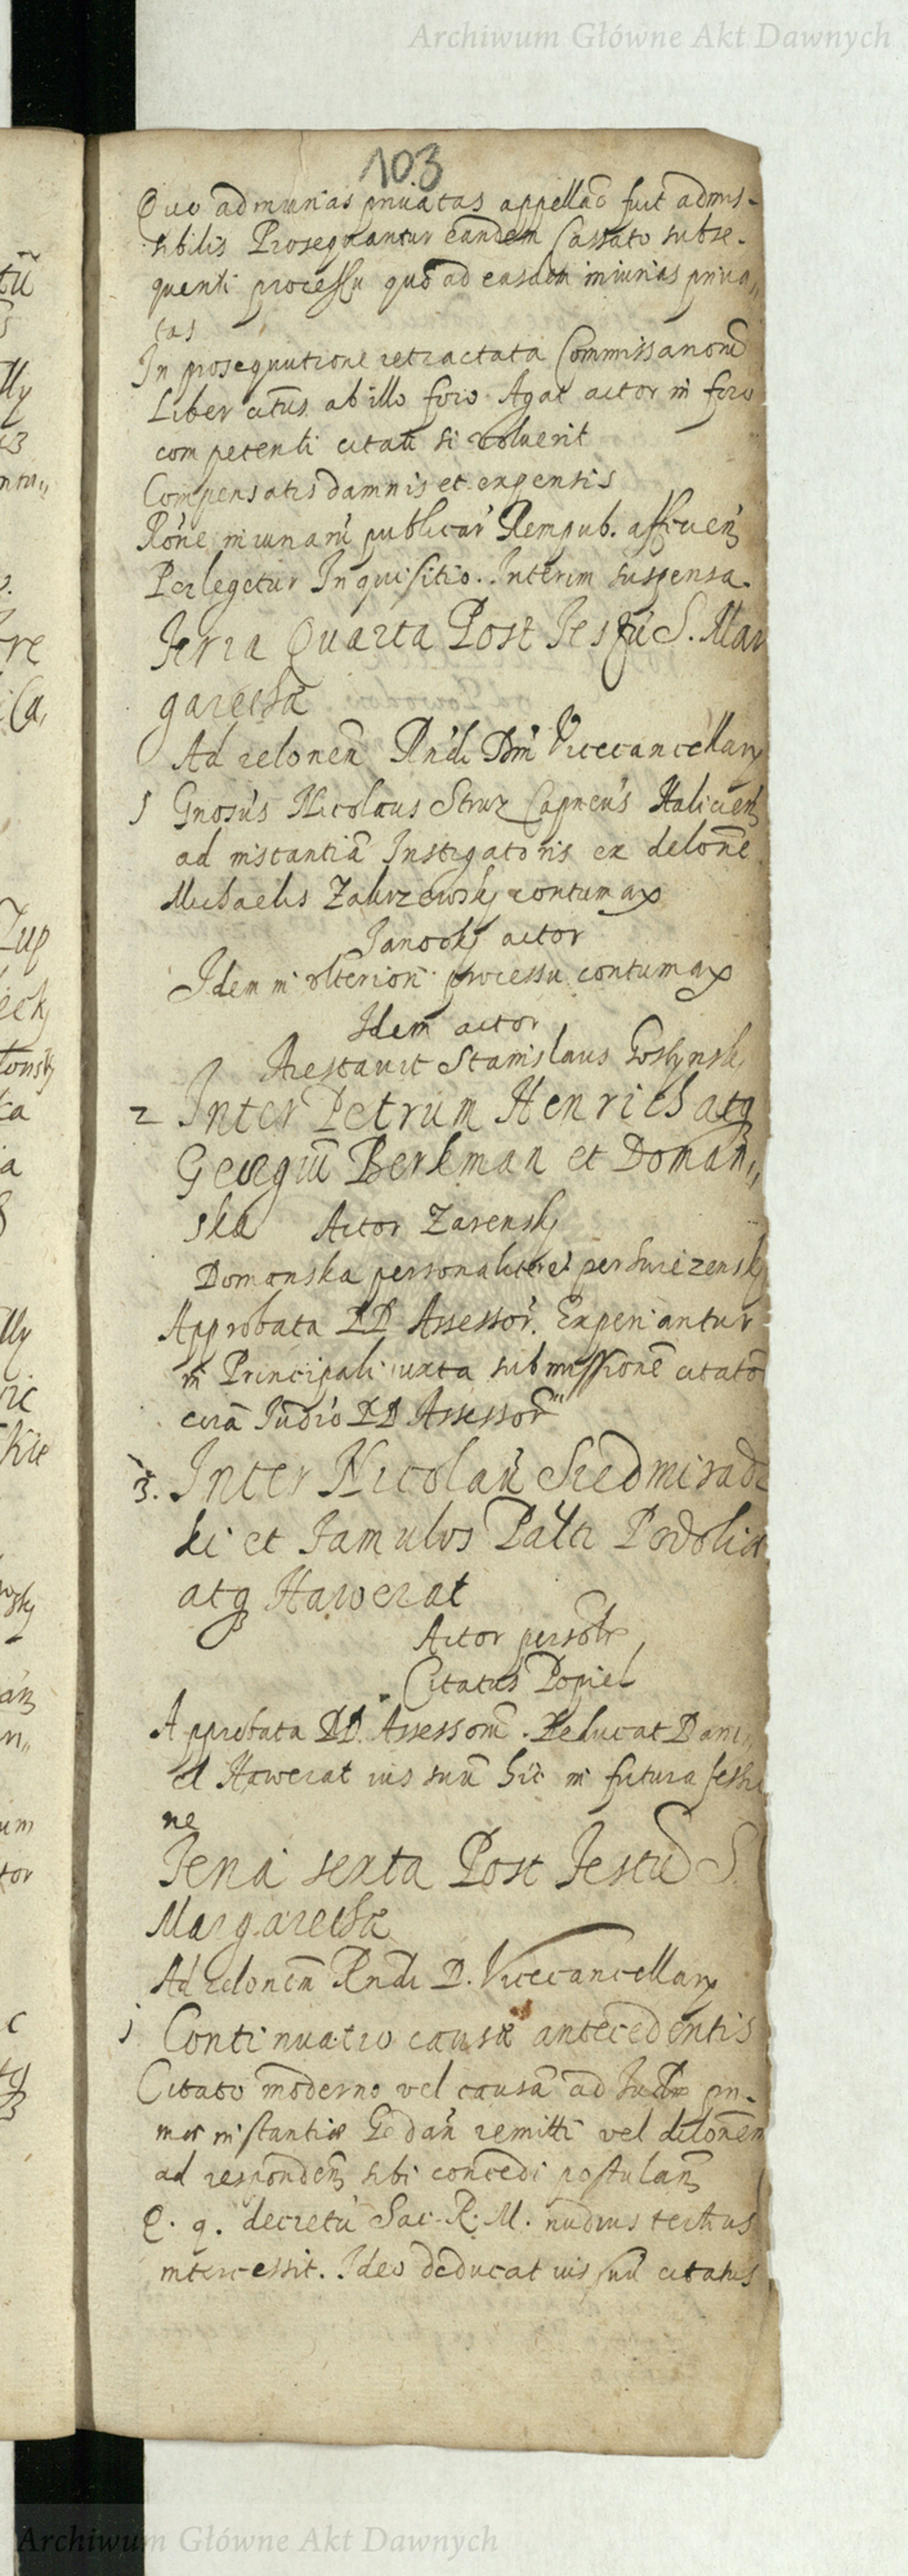 Archiwum Główne Akt Dawnych
103
Quo ad iniurias priuatas appellaõ fuit admis-
sibilis Prosequantur eandem Cassato subse-
quenti processu quo ad easdem iniurias priua„
tas
In prosequutione retractata Commissariorũ
Liber citus ab illo foro Agat actor in foro
competenti citati si voluerit
Compensatis damnis et expensis
Rône iniuriarũ publicar' Rempub. afficien
Perlegetur Inquisitio. Interim suspensa.
Feria Quarta Post Festũ S. Mar
garetha
Ad relonem Rndi Dni Vicecancellarij
1 Gnosus Nicolaus Strus Capneus Halicien
ad instantiã Instigatoris ex delone
Michaelis Zakrzewskj contumax
Janockj actor
Idem in vlteriori processu contumax
Idem actor
Arestauit Stanislaus Goslynskj
2 Inter Petrum Henrich atq
Georgiũ Berkman et Doman„
ska Actor Zarenskj
Domanska personaliter et per
Approbata DD Assessor. Experiantur
in Principali iuxta submissionẽ citato
circa Iudio DD Assessor
3. Inter Nicolaũ Siedmiradz
ki et Famulos Palti Podolia
atq Hawerat
Actor personlr
Citatus Popiel
Approbata DD. Assessorũ. Deducat Dani„
el Hawerat ius suũ hic in futura sessio
ne
Feria sexta Post Festũ S.
Margaretha
Ad relonem Rndi D. Vicecancellarij
1 Continuatio causæ antecedentis
Citato moderno vel causã ad Iudm pri-
mæ instantiæ Gedan remitti vel dilonem
ad responden sibi concedi postulan
E. q. decretũ Sac. R. M. nudius tertius
intercessit. Ideo deducat ius suũ citatus
Archiwum Główne Akt Dawnych